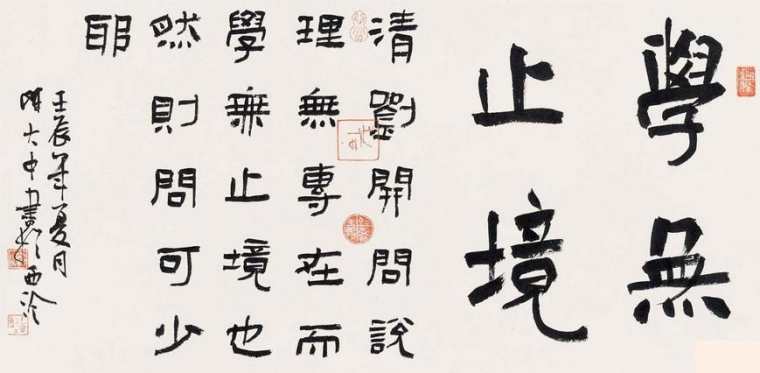 學無
止境
清劉開問說
理無專在而
學無止境也
然則問可少
耶
壬辰年夏月
陳大中書於西泠